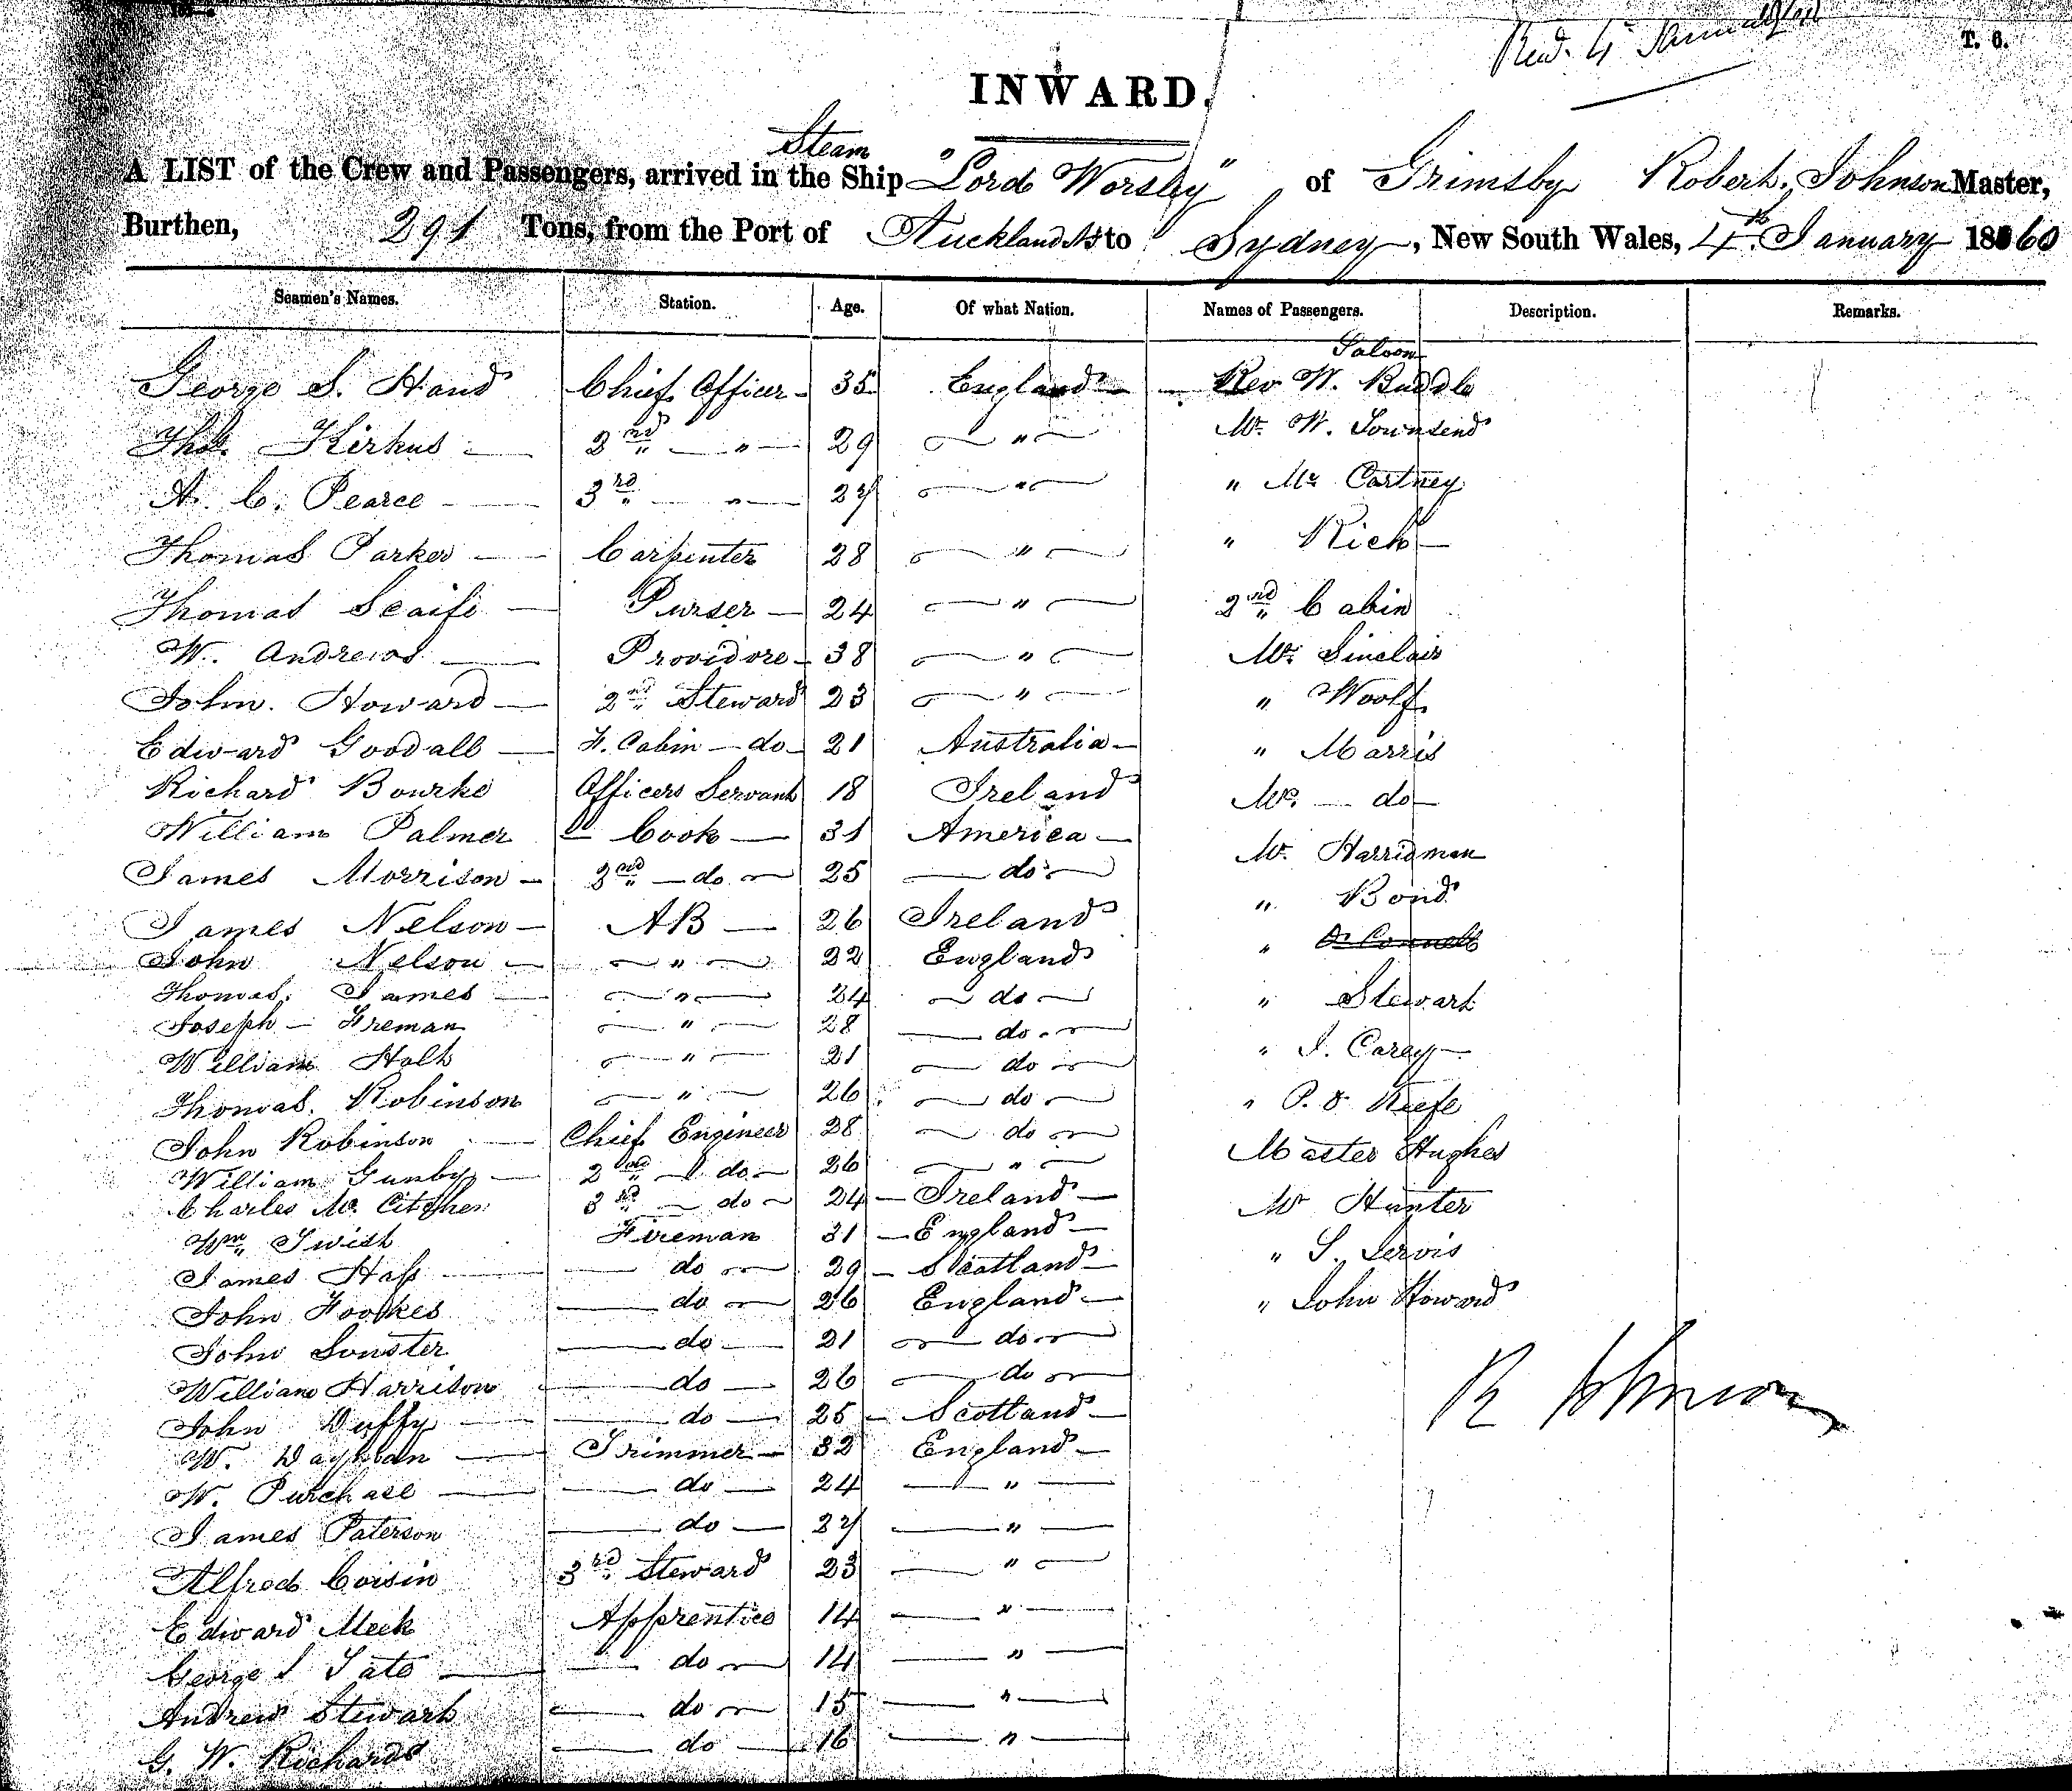 Recd. 4th January
T. 6.
INWARD.
Steam
A LIST of the Crew and Passengers, arrived in the Ship "Lord Worsley" of Grimsby Robert Johnson Master,
Burthen, 291 Tons, from the Port of Auckland &c to Sydney, New South Wales, 4th January 1860
Seamen's Names. Station. Age. Of what Nation. Names of Passengers. Description. Remarks.
Saloon
George S. Hand Chief Officer 35 England Rev W. Buddle
Thos. Kirkus 2nd " 29 " Mr. W. Townsend
A. C. Pearce 3rd " 27 " " Mc Cartney
Thomas Parker Carpenter 28 " " Rich
Thomas Scaife Purser 24 " 2nd Cabin
W. Andrews Providore 38 " Mr. Sinclair
John Howard 2nd Steward 23 " " Woolf
Edward Goodall F. Cabin do 21 Australia " Marris
Richard Bourke Officers Servant 18 Ireland Mrs. do
William Palmer Cook 31 America Mr. Harridman
James Morrison 2nd do 25 do " Bond
James Nelson AB 26 Ireland " O'Connell
John Nelson " 22 England
Thomas James " 24 do " Stewart
Joseph Freman " 28 do
William Holt " 21 do " J. Carey
Thomas Robinson " 26 do " P. O Keefe
John Robinson Chief Engineer 28 do Master Hughes
William Gunby 2nd do 26 "
Charles Mc. 3rd do 24 Ireland Mr Hunter
Wm Fireman 31 England
James do 29 Scotland " S. Jervis
John Foolkes do 26 England " John Howard
John do 21 do
William Harrison do 26 do R Johnson
John Duffy do 25 Scotland
W. Trimmer 32 England
W. Purchase do 24 "
James Paterson do 27 "
Alfred Coisin 3rd Steward 23 "
Edward Meek Apprentice 14 "
George Tate do 14 "
Andrew Stewart do 15 "
G. W. Richards do 16 "